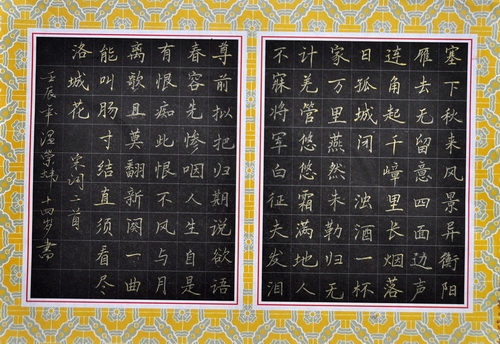 塞下秋来风景异衡阳
雁去无留意四面边声
连角起千嶂里长烟落
日孤城闭 浊酒一杯
家万里燕然未勒归无
计羌管悠悠霜满地人
不寐将军白征夫发泪
尊前拟把归期说欲语
春容先惨咽人生自是
有恨痴此恨不风与月
离歌且莫翻新阕一曲
能叫肠寸结直须看尽
洛城花
宋词二首
壬辰年温崇炜十四岁书